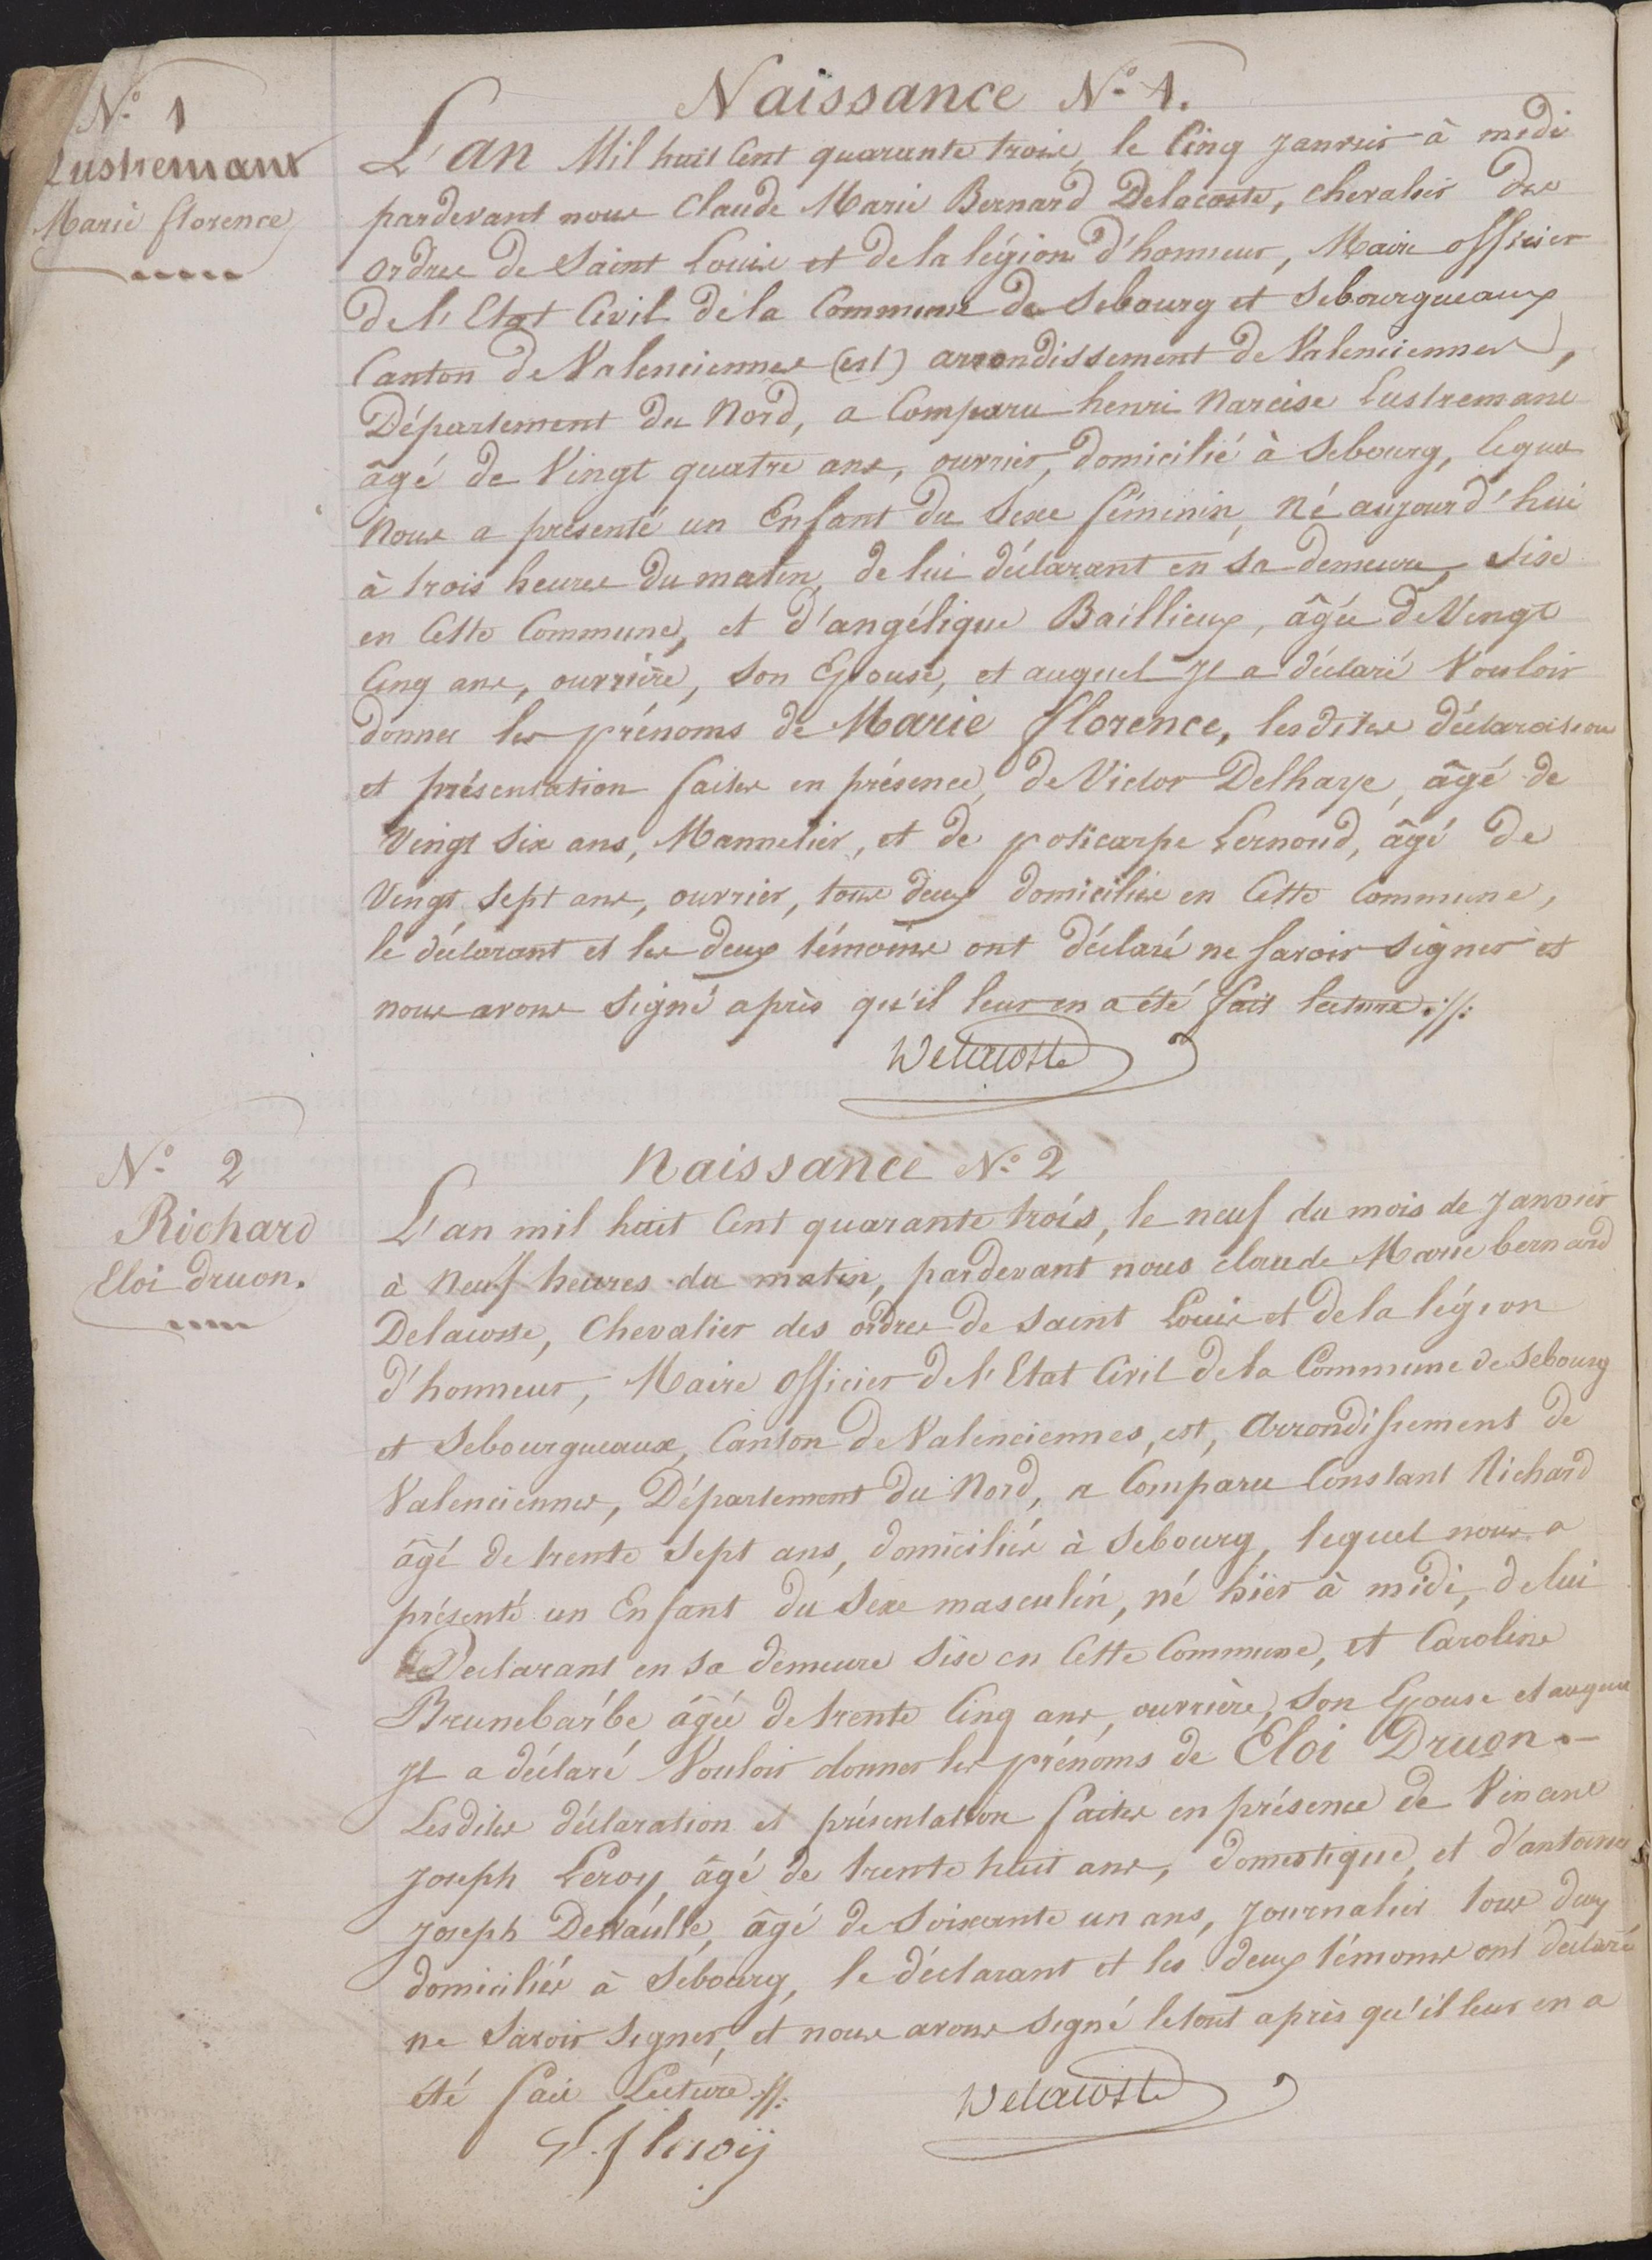 Naissance N.° 1.
N.° 1
Lustremant
Marie florence
L'an Mil huit Cent quarante trois, le Cinq Janvier à midi
pardevant nous Claude Marie Bernard Delacoste, chevalier des
ordres de Saint Louis et de la légion d'honneur, Maire officier
de l'Etat Civil de la Commune de Sebourg et Sebourgueaux
Canton de Valenciennes (est) arrondissement de Valenciennes,
Département du Nord, a Comparu henri Narcise Lustremant
âgé de Vingt quatre ans, ouvrier, domicilié à Sebourg, lequel
Nous a présenté un Enfant du Sexe féminin, Né aujourd'hui
à trois heures du matin, de lui déclarant en sa demeure, sise
en Cette Commune, et d'angélique Baillieux, âgée de Vingt
Cinq ans, ouvrière, son Epouse, et auquel Il a déclaré Vouloir
donner les prénoms de Marie florence, lesdites déclaration
et présentation faites en présence, de Victor Delhaye, âgé de
Vingt Six ans, Mannelier, et de policarpe Lernoud, âgé de
Vingt Sept ans, ouvrier, tous deux domiciliés en Cette Commune,
le déclarant et les deux témoins ont déclaré ne savoir signer et
nous avons signé après qu'il leur en a été fait lecture ://:
Delacoste
Naissance N.° 2
N.° 2
Richard
Eloi druon.
L'an mil huit Cent quarante trois, le neuf du mois de Janvier
à Neuf heures du matin, pardevant nous claude Marie bernard
Delacoste, Chevalier des ordres de Saint Louis et de la légion
d'honneur, Maire Officier de l'Etat Civil de la Commune de Sebourg
et Sebourgueaux, Canton de Valenciennes, est, Arrondissement de
Valenciennes, Département du Nord, a Comparu Constant Richard
âgé de trente Sept ans, domiciliés à Sebourg, lequel nous a
présenté un Enfant du Sexe masculin, né hier à midi, de lui
Declarant en sa demeure sise en Cette Commune, et Caroline
Brunebarbe âgée de trente Cinq ans, ouvrière, son Epouse et auquel
Il a déclaré Vouloir donner les prénoms de Eloi Druon.-
Lesdites déclaration et présentation faites en présence de Vincent
Joseph Leroy, âgé de trente huit ans, domestique, et d'antoine
Joseph âgé de soixante un ans, Journalier tous deux
domiciliés à Sebourg, le déclarant et les deux témoins ont déclaré
ne Savoir Signer, et nous avons signé le tout après qu'il leur en a
été fait Lecture ://:
Delacoste
leroij